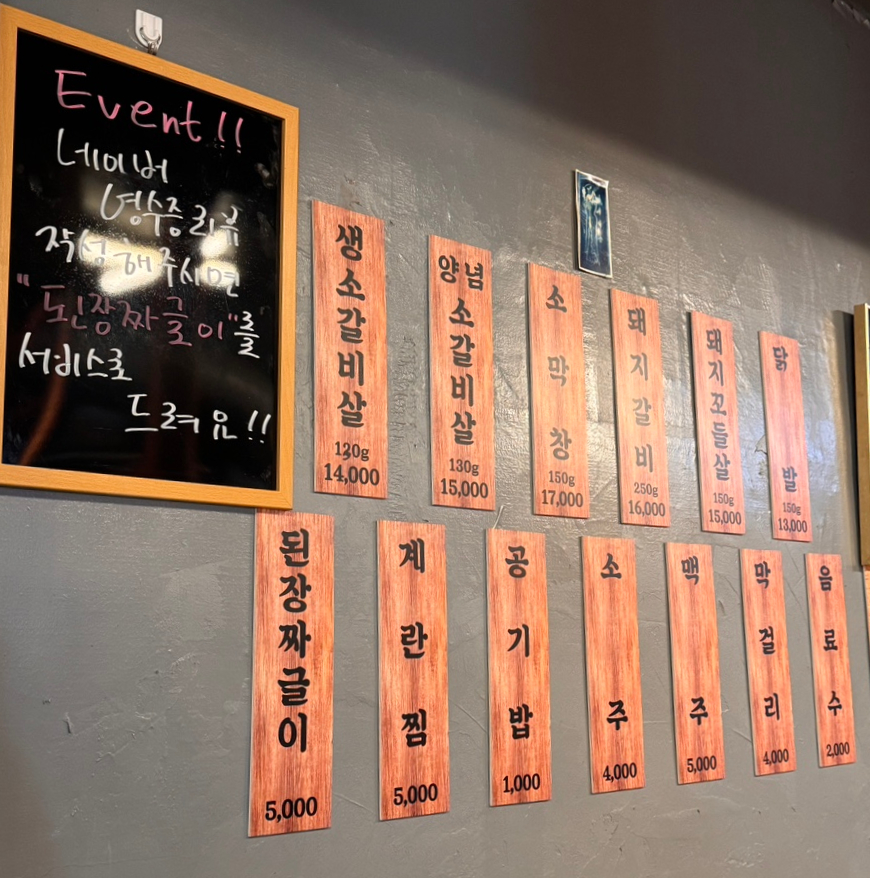 Event!!
네이버
영수증리뷰
작성해주시면
"된장짜글이"를
서비스로
드려요!!
생소갈비살
120g
14,000
양념
소갈비살
130g
15,000
소막창
150g
17,000
돼지갈비
250g
16,000
돼지꼬들살
150g
15,000
닭발
150g
13,000
된장짜글이
5,000
계란찜
5,000
공기밥
1,000
소주
4,000
맥주
5,000
막걸리
4,000
음료수
2,000